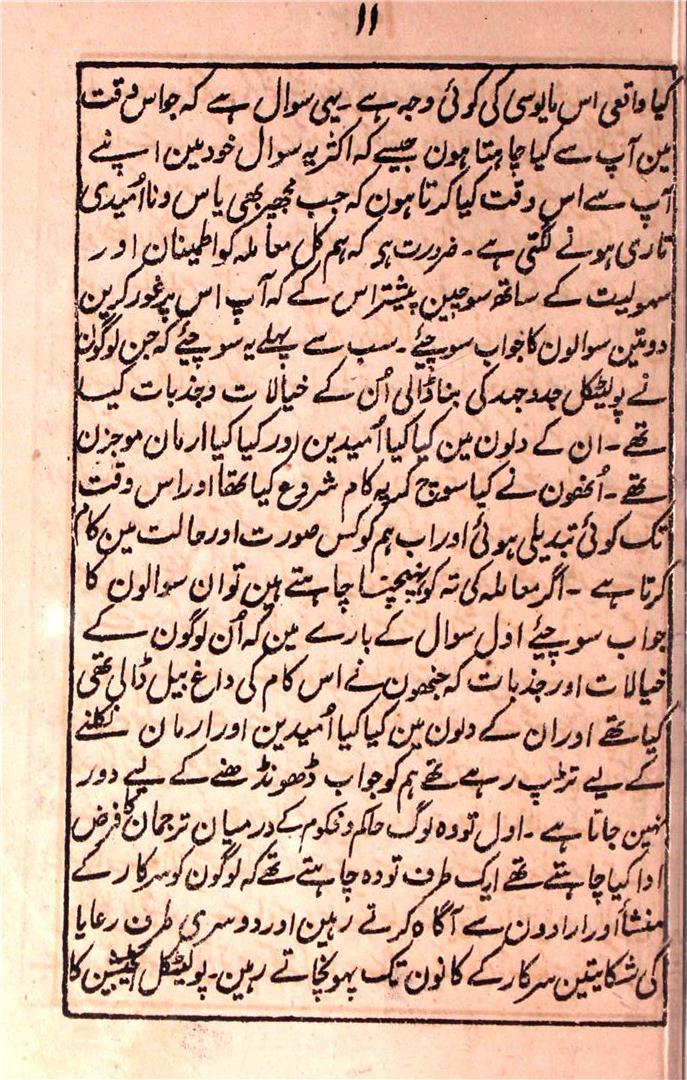 ۱۱
کیا واقعی اس مایوسی کی کوئی وجہ ہے ۔ یہی سوال ہے کہ جو اس وقت
مین آپ سے کیا چاہتا ہون جیسے کہ اکثر یہ سوال خود مین اپنے
آپ سے اس وقت کیا کرتا ہون کہ جب مجھپر بھی یاس و نا اُمیدی
تاری ہونے لگتی ہے ۔ ضرورت ہو کہ ہم کل معاملہ کو اطمینان اور
سہولیت کے ساتھ سوچین پیشتر اس کے کہ آپ اس پر غور کرین
دو تین سوالون کا جواب سوچیئے ۔ سب سے پہلے یہ سوچیئے کہ جن لوگون
نے پولیٹکل جدوجہد کی بنا ڈالی اُن کے خیالات و جذبات کیا
تھے ۔ ان کے دلون مین کیا کیا اُمیدین اور کیا کیا ارمان موجزن
تھے ۔ اُنھون نے کیا سوچ کر یہ کام شروع کیا تھا اور اس وقت
تک کوئی تبدیلی ہوئی اور اب ہم کو کس صورت اور حالت مین کام
کرنا ہے ۔ اگر معاملہ کی تہ کو پہنچنا چاہتے ہین تو ان سوالون کا
جواب سوچیئے اول سوال کے بارے مین کہ اُن لوگون کے
خیالات اور جذبات کہ جنھون نے اس کام کی داغ بیل ڈالی تھی
کیا تھے اور ان کے دلون مین کیا کیا اُمیدین اور ارمان نکلنے
کے لیے تڑپ رہے تھے ہم کو جواب ڈھونڈھنے کے لیے دور
نہین جانا ہے ۔ اول تو وہ لوگ حاکم و محکوم کے درمیان ترجمان کا فرض
ادا کیا چاہتے تھے ایک طرف تو وہ چاہتے تھے کہ لوگون کو سرکار کے
منشأ اور ارادون سے آگاہ کرتے رہین اور دوسری طرف رعایا
کی شکایتین سرکار کے کانون تک پہونچاتے رہین ۔ پولیٹکل ایجیٹیشن کا